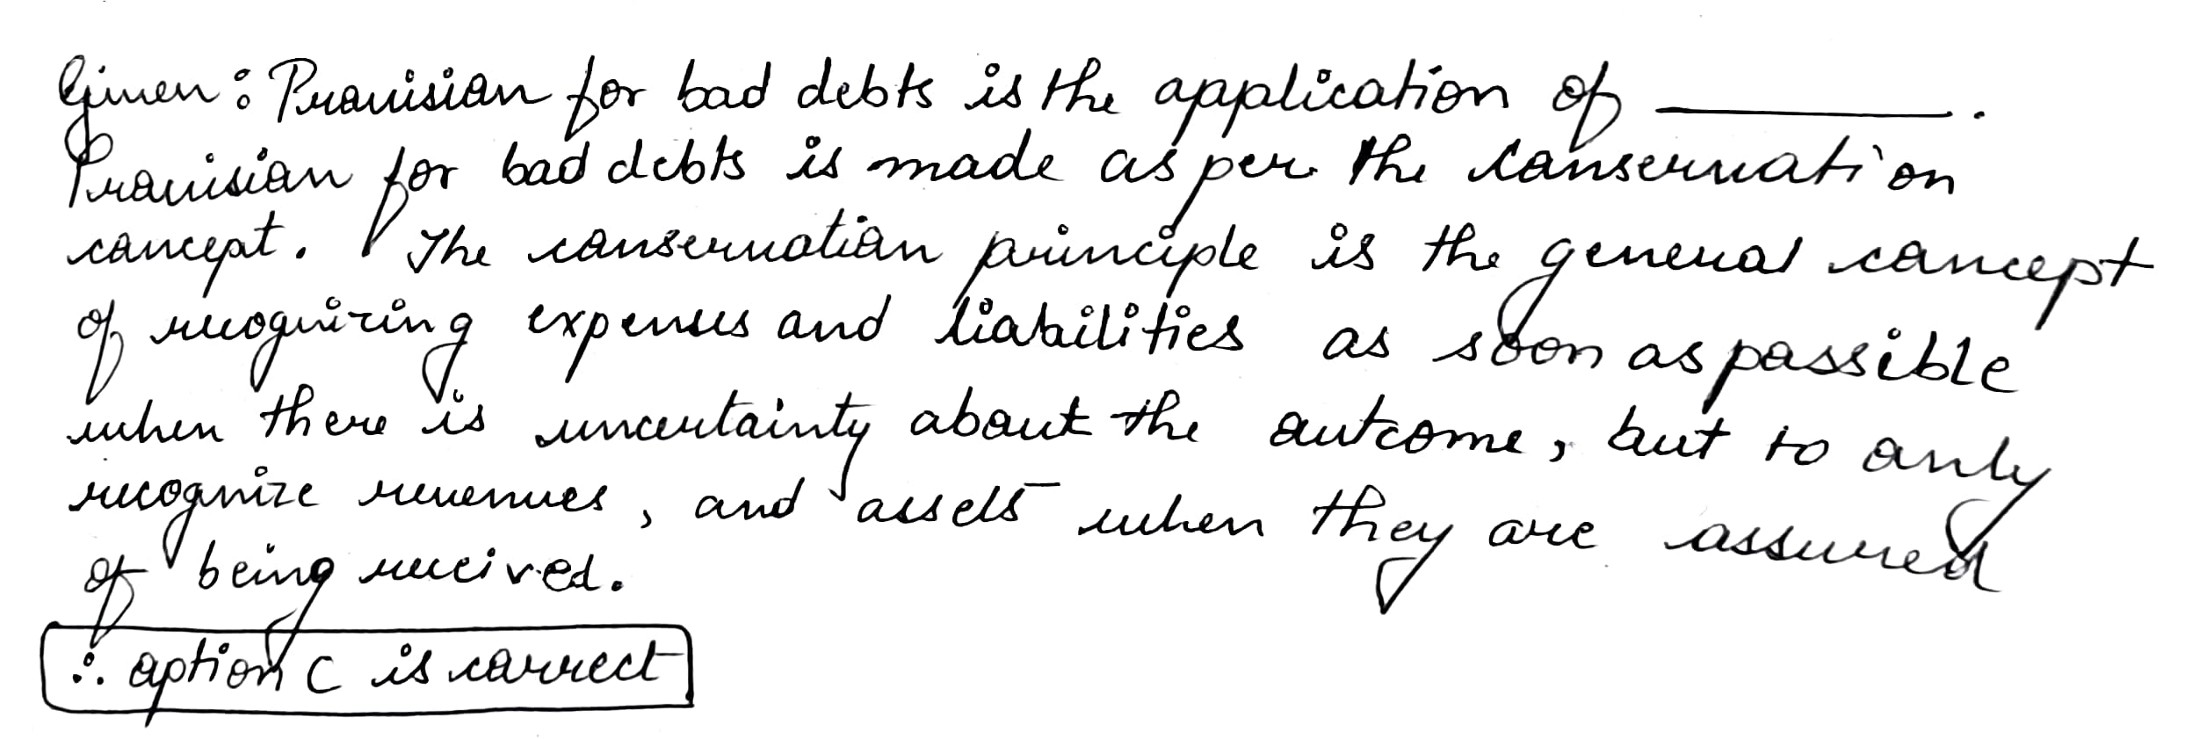 Given : Provision for bad debts is the application of ________.
Provision for bad debts is made as per the conservation
concept. The conservation principle is the general concept
of recognizing expenses and liabilities as soon as possible
when there is uncertainty about the outcome, but to only
recognize revenues, and assets when they are assured
of being received.
∴ option C is correct